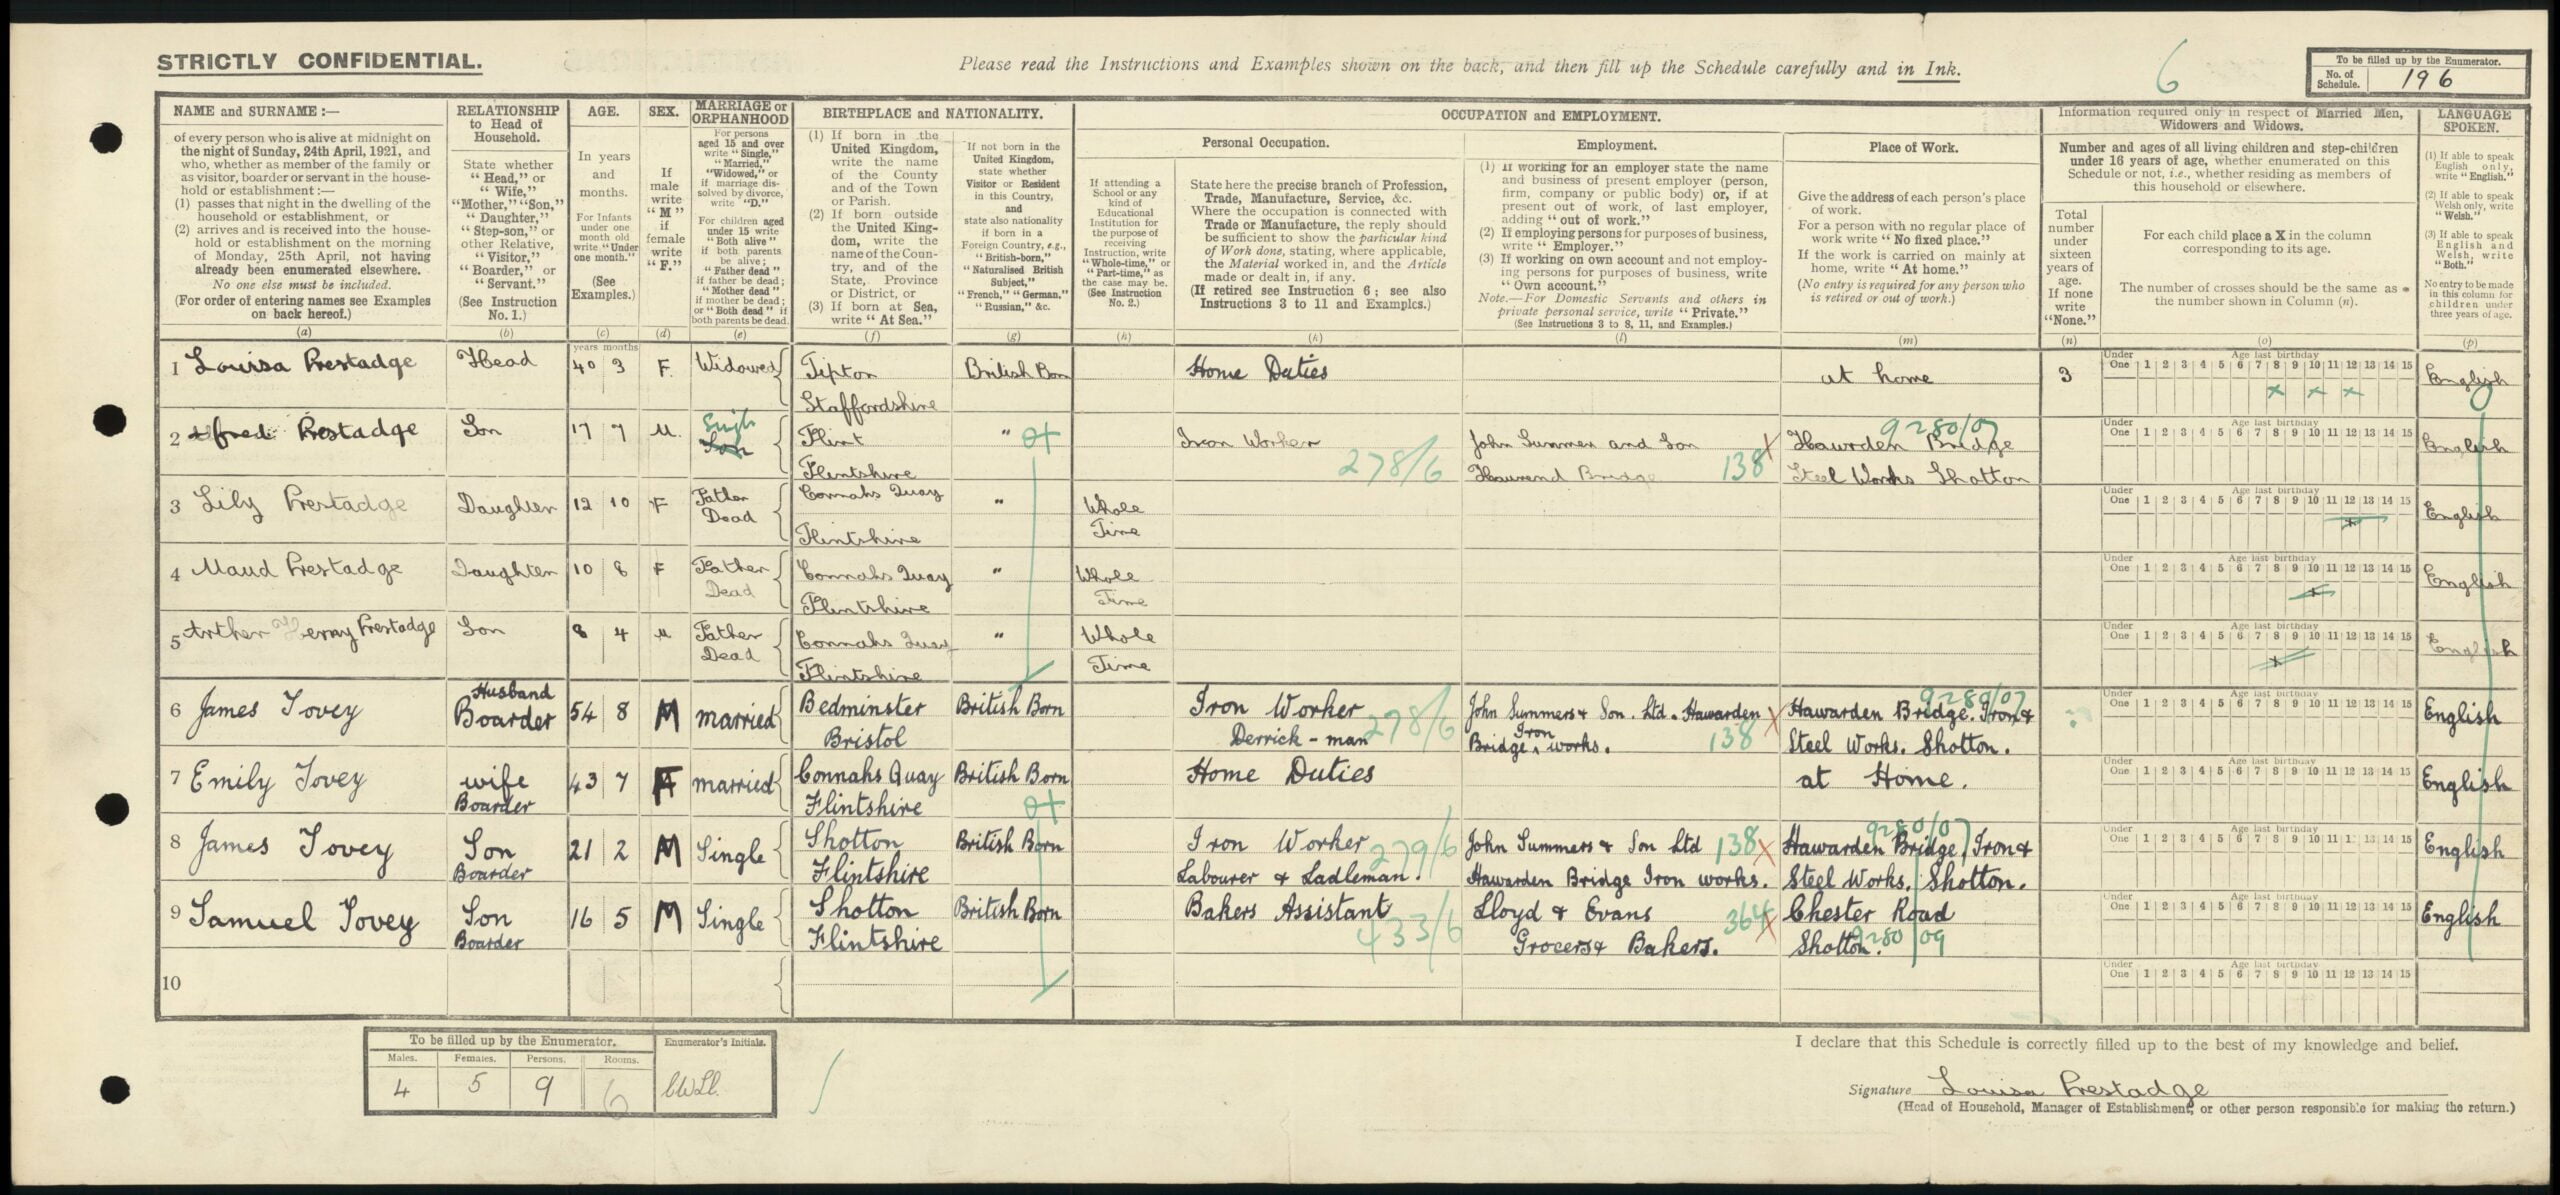 STRICTLY CONFIDENTIAL.
Please read the Instructions and Examples shown on the back, and then fill up the Schedule carefully and in Ink.
6
To be filled up by the Enumerator.
No. of Schedule. 196
NAME and SURNAME :—
of every person who is alive at midnight on
the night of Sunday, 24th April, 1921, and
who, whether as member of the family or
as visitor, boarder or servant in the house-
hold or establishment :—
(1) passes that night in the dwelling of the
household or establishment, or
(2) arrives and is received into the house-
hold or establishment on the morning
of Monday, 25th April, not having
already been enumerated elsewhere.
No one else must be included.
(For order of entering names see Examples
on back hereof.)
(a)
RELATIONSHIP
to Head of
Household.
State whether
"Head," or
"Wife,"
"Mother," "Son,"
"Daughter,"
"Step-son," or
other Relative,
"Visitor,"
"Boarder," or
"Servant."
(See Instruction
No. 1.)
(b)
AGE.
In years
and
months.
For Infants
under one
month old
write "Under
one month."
(See
Examples.)
(c)
SEX.
If
male
write
"M"
if
female
write
"F."
(d)
MARRIAGE or
ORPHANHOOD
For persons
aged 15 and over
write "Single,"
"Married,"
"Widowed," or
if marriage dis-
solved by divorce,
write "D."
For children aged
under 15 write
"Both alive"
if both parents
be alive;
"Father dead"
if father be dead;
"Mother dead"
if mother be dead;
or "Both dead" if
both parents be dead.
(e)
BIRTHPLACE and NATIONALITY.
(1) If born in the
United Kingdom,
write the name
of the County
and of the Town
or Parish.
(2) If born outside
the United King-
dom, write the
name of the Coun-
try, and of the
State, Province
or District, or
(3) If born at Sea,
write "At Sea."
(f)
If not born in the
United Kingdom,
state whether
Visitor or Resident
in this Country,
and
state also nationality
if born in a
Foreign Country, e.g.,
"British-born,"
"Naturalised British
Subject,"
"French," "German,"
"Russian," &c.
(g)
OCCUPATION and EMPLOYMENT.
If attending a
School or any
kind of
Educational
Institution for
the purpose of
receiving
Instruction, write
"Whole-time," or
"Part-time," as
the case may be.
(See Instruction
No. 2.)
(h)
Personal Occupation.
State here the precise branch of Profession,
Trade, Manufacture, Service, &c.
Where the occupation is connected with
Trade or Manufacture, the reply should
be sufficient to show the particular kind
of Work done, stating, where applicable,
the Material worked in, and the Article
made or dealt in, if any.
(If retired see Instruction 6; see also
Instructions 3 to 11 and Examples.)
(k)
Employment.
(1) If working for an employer state the name
and business of present employer (person,
firm, company or public body) or, if at
present out of work, of last employer,
adding "out of work."
(2) If employing persons for purposes of business,
write "Employer."
(3) If working on own account and not employ-
ing persons for purposes of business, write
"Own account."
Note.—For Domestic Servants and others in
private personal service, write "Private."
(See Instructions 3 to 8, 11, and Examples.)
(l)
Place of Work.
Give the address of each person's place
of work.
For a person with no regular place of
work write "No fixed place."
If the work is carried on mainly at
home, write "At home."
(No entry is required for any person who
is retired or out of work.)
(m)
Information required only in respect of Married Men,
Widowers and Widows.
Number and ages of all living children and step-children
under 16 years of age, whether enumerated on this
Schedule or not, i.e., whether residing as members of
this household or elsewhere.
Total
number
under
sixteen
years of
age.
If none
write
"None."
(n)
For each child place a X in the column
corresponding to its age.
The number of crosses should be the same as
the number shown in Column (n).
(o)
LANGUAGE
SPOKEN.
(1) If able to speak
English only,
write "English."
(2) If able to speak
Welsh only, write
"Welsh."
(3) If able to speak
English and
Welsh, write
"Both."
No entry to be made
in this column for
children under
three years of age.
(p)
years months
Under One 1 2 3 4 5 6 7 8 9 10 11 12 13 14 15 Age last birthday
1 Louisa Prestadge Head 40 3 F. Widowed Tipton British Born Home Duties at home 3 x x x English
Staffordshire
2 Alfred Prestadge Son 17 7 M. Singl Son Flint " Iron Worker John Summer and Son x Hawrden Bridge 9280/07 English
Flintshire 278/6 Hawrend Bridge 138 Steel Works Shotton
3 Lily Prestadge Daughter 12 10 F Father Dead Connahs Quay " Whole Time x English
Flintshire
4 Maud Prestadge Daughter 10 8 F Father Dead Connahs Quay " Whole Time x English
Flintshire
5 Arther Henry Prestadge Son 8 4 M Father Dead Connahs Quay " Whole Time x English
Flintshire
6 James Tovey Husband Boarder 54 8 M married Bedminster British Born Iron Worker John Summers & Son. Ltd. Hawarden x Hawarden Bridge. Iron & 9280/07 English
Bristol Derrick - man 278/6 Bridge Iron works. 138 Steel Works. Shotton.
7 Emily Tovey wife Boarder 43 7 F married Connahs Quay British Born Home Duties at Home. English
Flintshire
8 James Tovey Son Boarder 21 2 M Single Shotton British Born Iron Worker 279/6 John Summers & Son Ltd 138 x Hawarden Bridge, Iron & 9280/07 English
Flintshire Labourer & Ladleman. Hawarden Bridge Iron works. Steel Works, Shotton.
9 Samuel Tovey Son Boarder 16 5 M Single Shotton British Born Bakers Assistant Lloyd & Evans 364 x Chester Road English
Flintshire 433/6 Grocers & Bakers. Shotton. 9280/09
10
To be filled up by the Enumerator.
Males. Females. Persons. Rooms.
4 5 9 6
Enumerator's Initials.
I declare that this Schedule is correctly filled up to the best of my knowledge and belief.
Signature Louisa Prestadge
(Head of Household, Manager of Establishment, or other person responsible for making the return.)